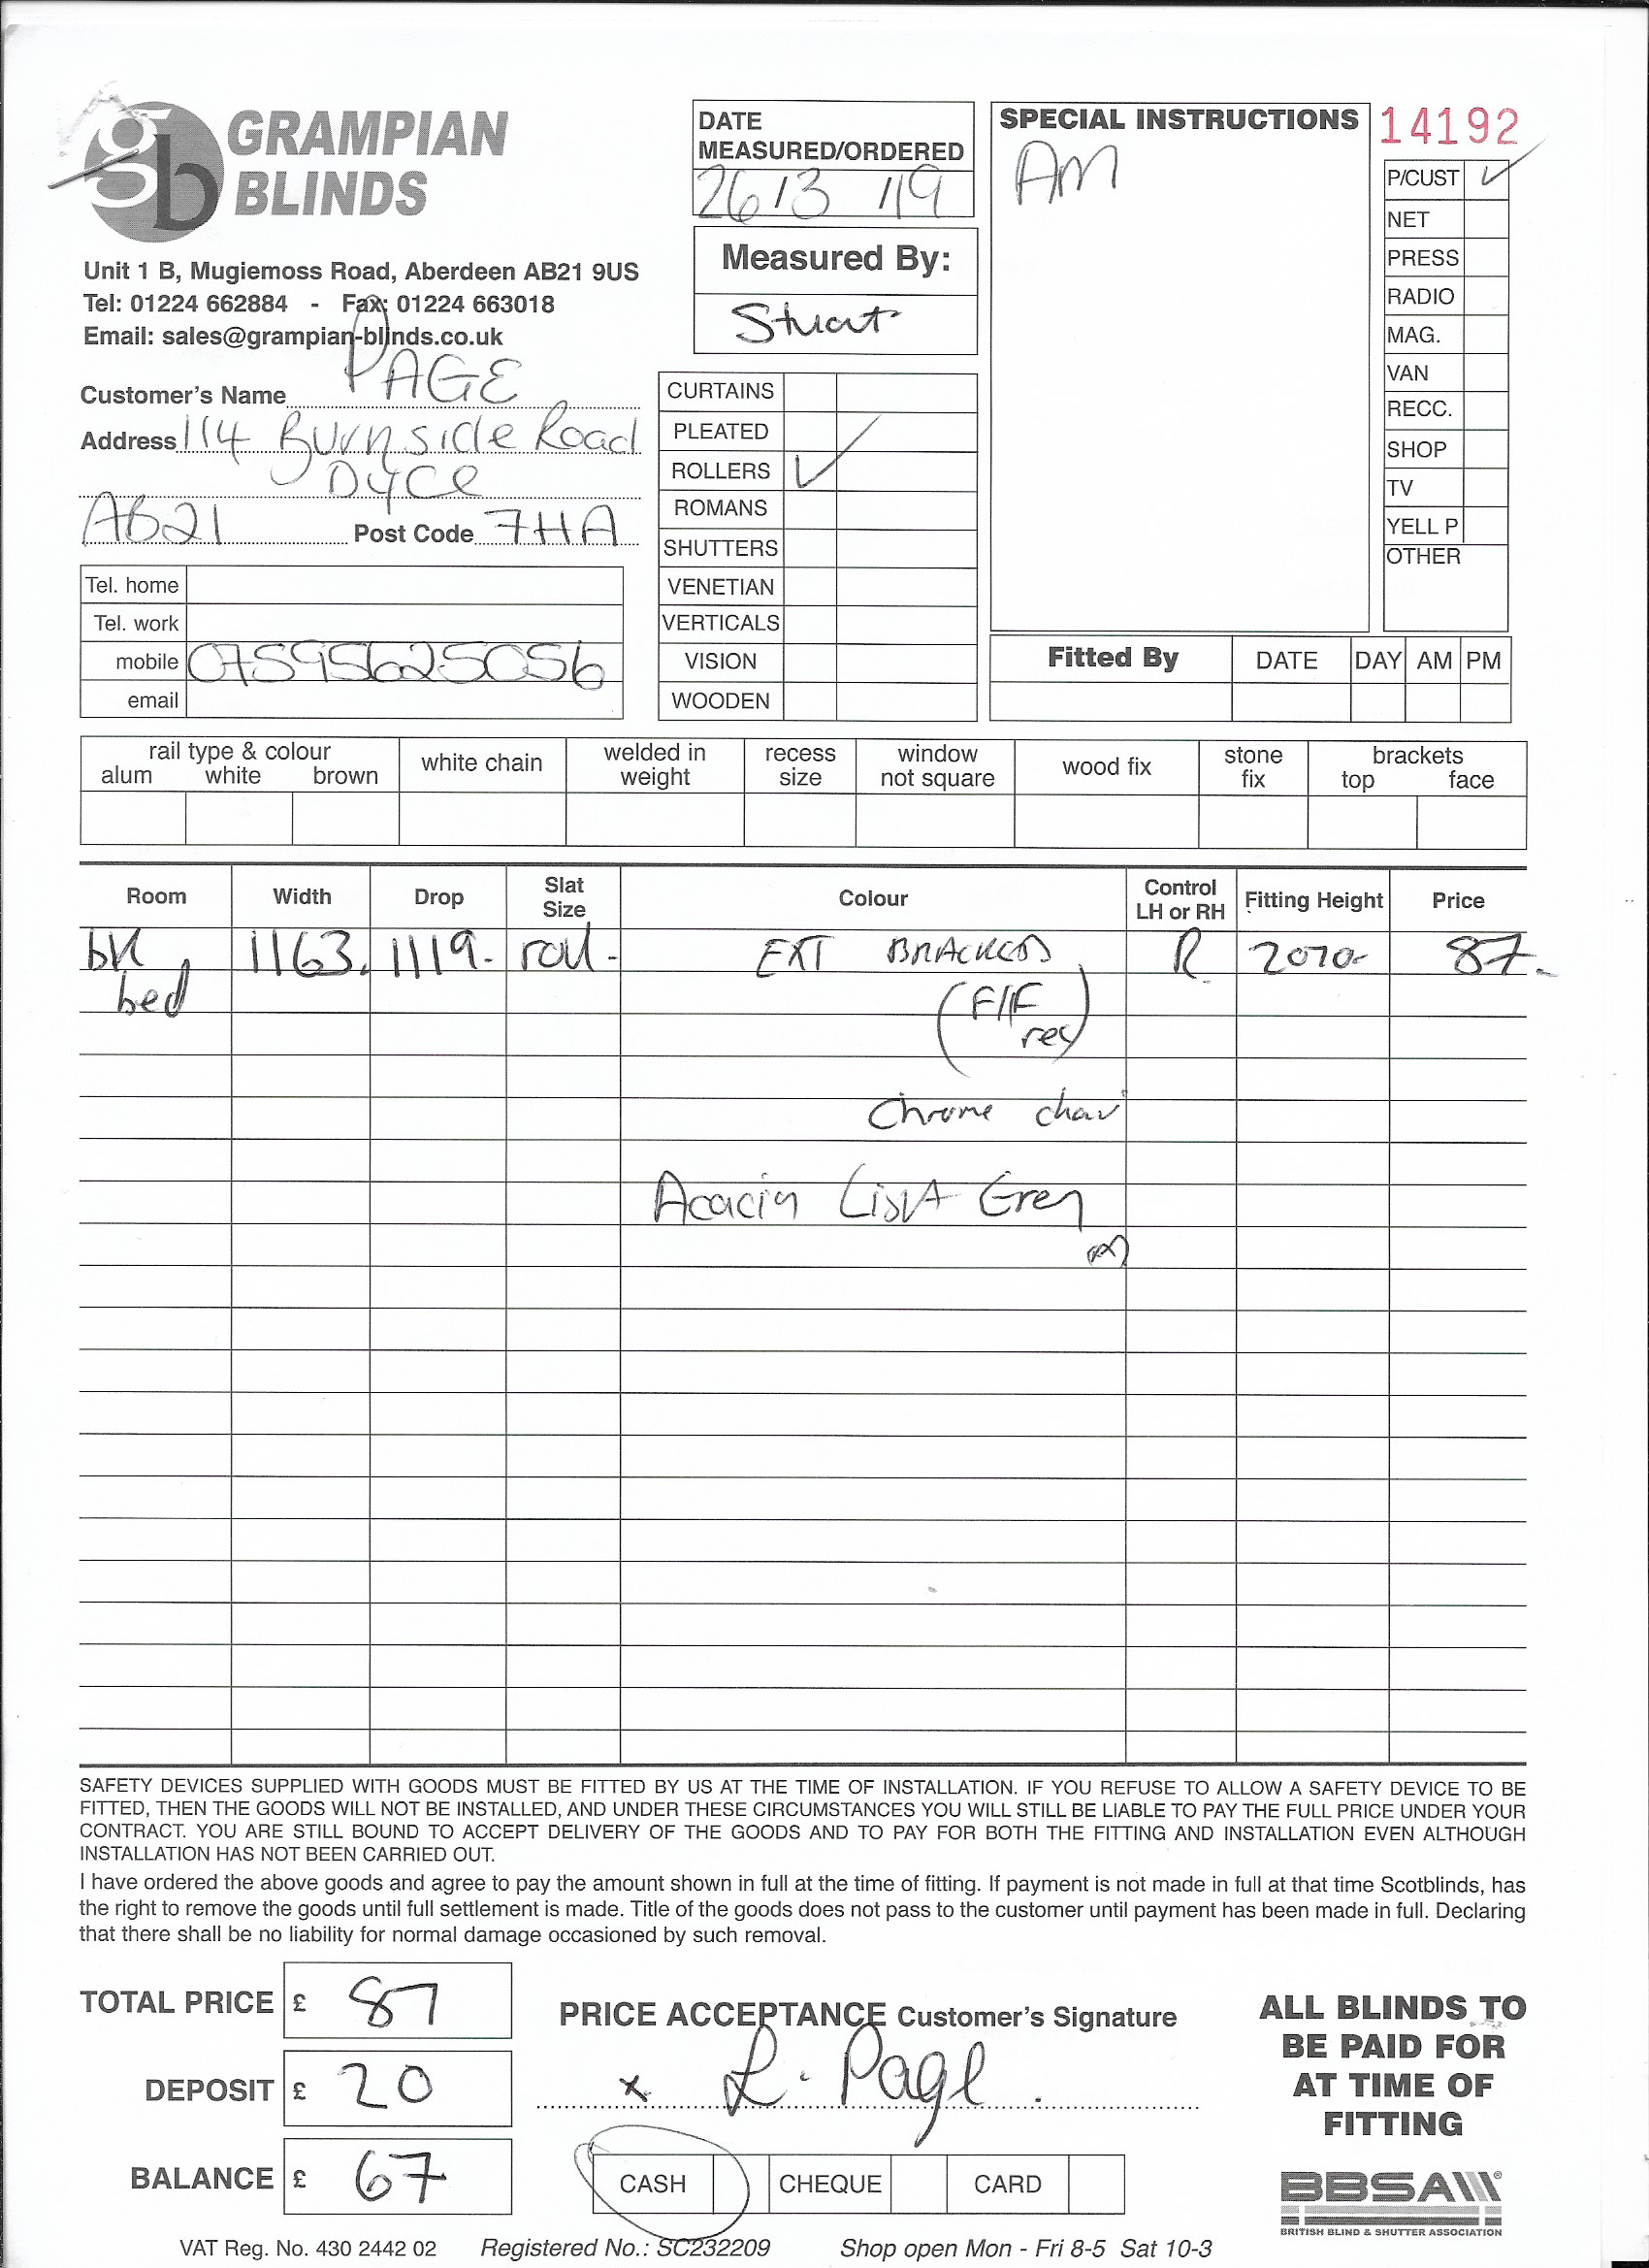 gb GRAMPIAN
BLINDS
Unit 1 B, Mugiemoss Road, Aberdeen AB21 9US
Tel: 01224 662884 - Fax: 01224 663018
Email: sales@grampian-blinds.co.uk
Customer's Name PAGE
Address 114 Burnside Road
Dyce
AB21 Post Code 7HA
Tel. home
Tel. work
mobile 07595625056
email
DATE
MEASURED/ORDERED
26/3/19
Measured By:
Stuart
CURTAINS
PLEATED
ROLLERS ✓
ROMANS
SHUTTERS
VENETIAN
VERTICALS
VISION
WOODEN
SPECIAL INSTRUCTIONS
AM
14192
P/CUST ✓
NET
PRESS
RADIO
MAG.
VAN
RECC.
SHOP
TV
YELL P
OTHER
Fitted By DATE DAY AM PM
rail type & colour
alum white brown
white chain
welded in
weight
recess
size
window
not square
wood fix
stone
fix
brackets
top face
Room Width Drop Slat Size Colour Control LH or RH Fitting Height Price
bk 1163. 1119. roll. EXT BRACKETS R 2070- 87.
bed (F/F
rec)
Chrome chain
Acacia Light Grey
SAFETY DEVICES SUPPLIED WITH GOODS MUST BE FITTED BY US AT THE TIME OF INSTALLATION. IF YOU REFUSE TO ALLOW A SAFETY DEVICE TO BE
FITTED, THEN THE GOODS WILL NOT BE INSTALLED, AND UNDER THESE CIRCUMSTANCES YOU WILL STILL BE LIABLE TO PAY THE FULL PRICE UNDER YOUR
CONTRACT. YOU ARE STILL BOUND TO ACCEPT DELIVERY OF THE GOODS AND TO PAY FOR BOTH THE FITTING AND INSTALLATION EVEN ALTHOUGH
INSTALLATION HAS NOT BEEN CARRIED OUT.
I have ordered the above goods and agree to pay the amount shown in full at the time of fitting. If payment is not made in full at that time Scotblinds, has
the right to remove the goods until full settlement is made. Title of the goods does not pass to the customer until payment has been made in full. Declaring
that there shall be no liability for normal damage occasioned by such removal.
TOTAL PRICE £ 87
DEPOSIT £ 20
BALANCE £ 67
PRICE ACCEPTANCE Customer's Signature
x L. Page
CASH CHEQUE CARD
ALL BLINDS TO
BE PAID FOR
AT TIME OF
FITTING
BBSA
BRITISH BLIND & SHUTTER ASSOCIATION
VAT Reg. No. 430 2442 02 Registered No.: SC232209 Shop open Mon - Fri 8-5 Sat 10-3